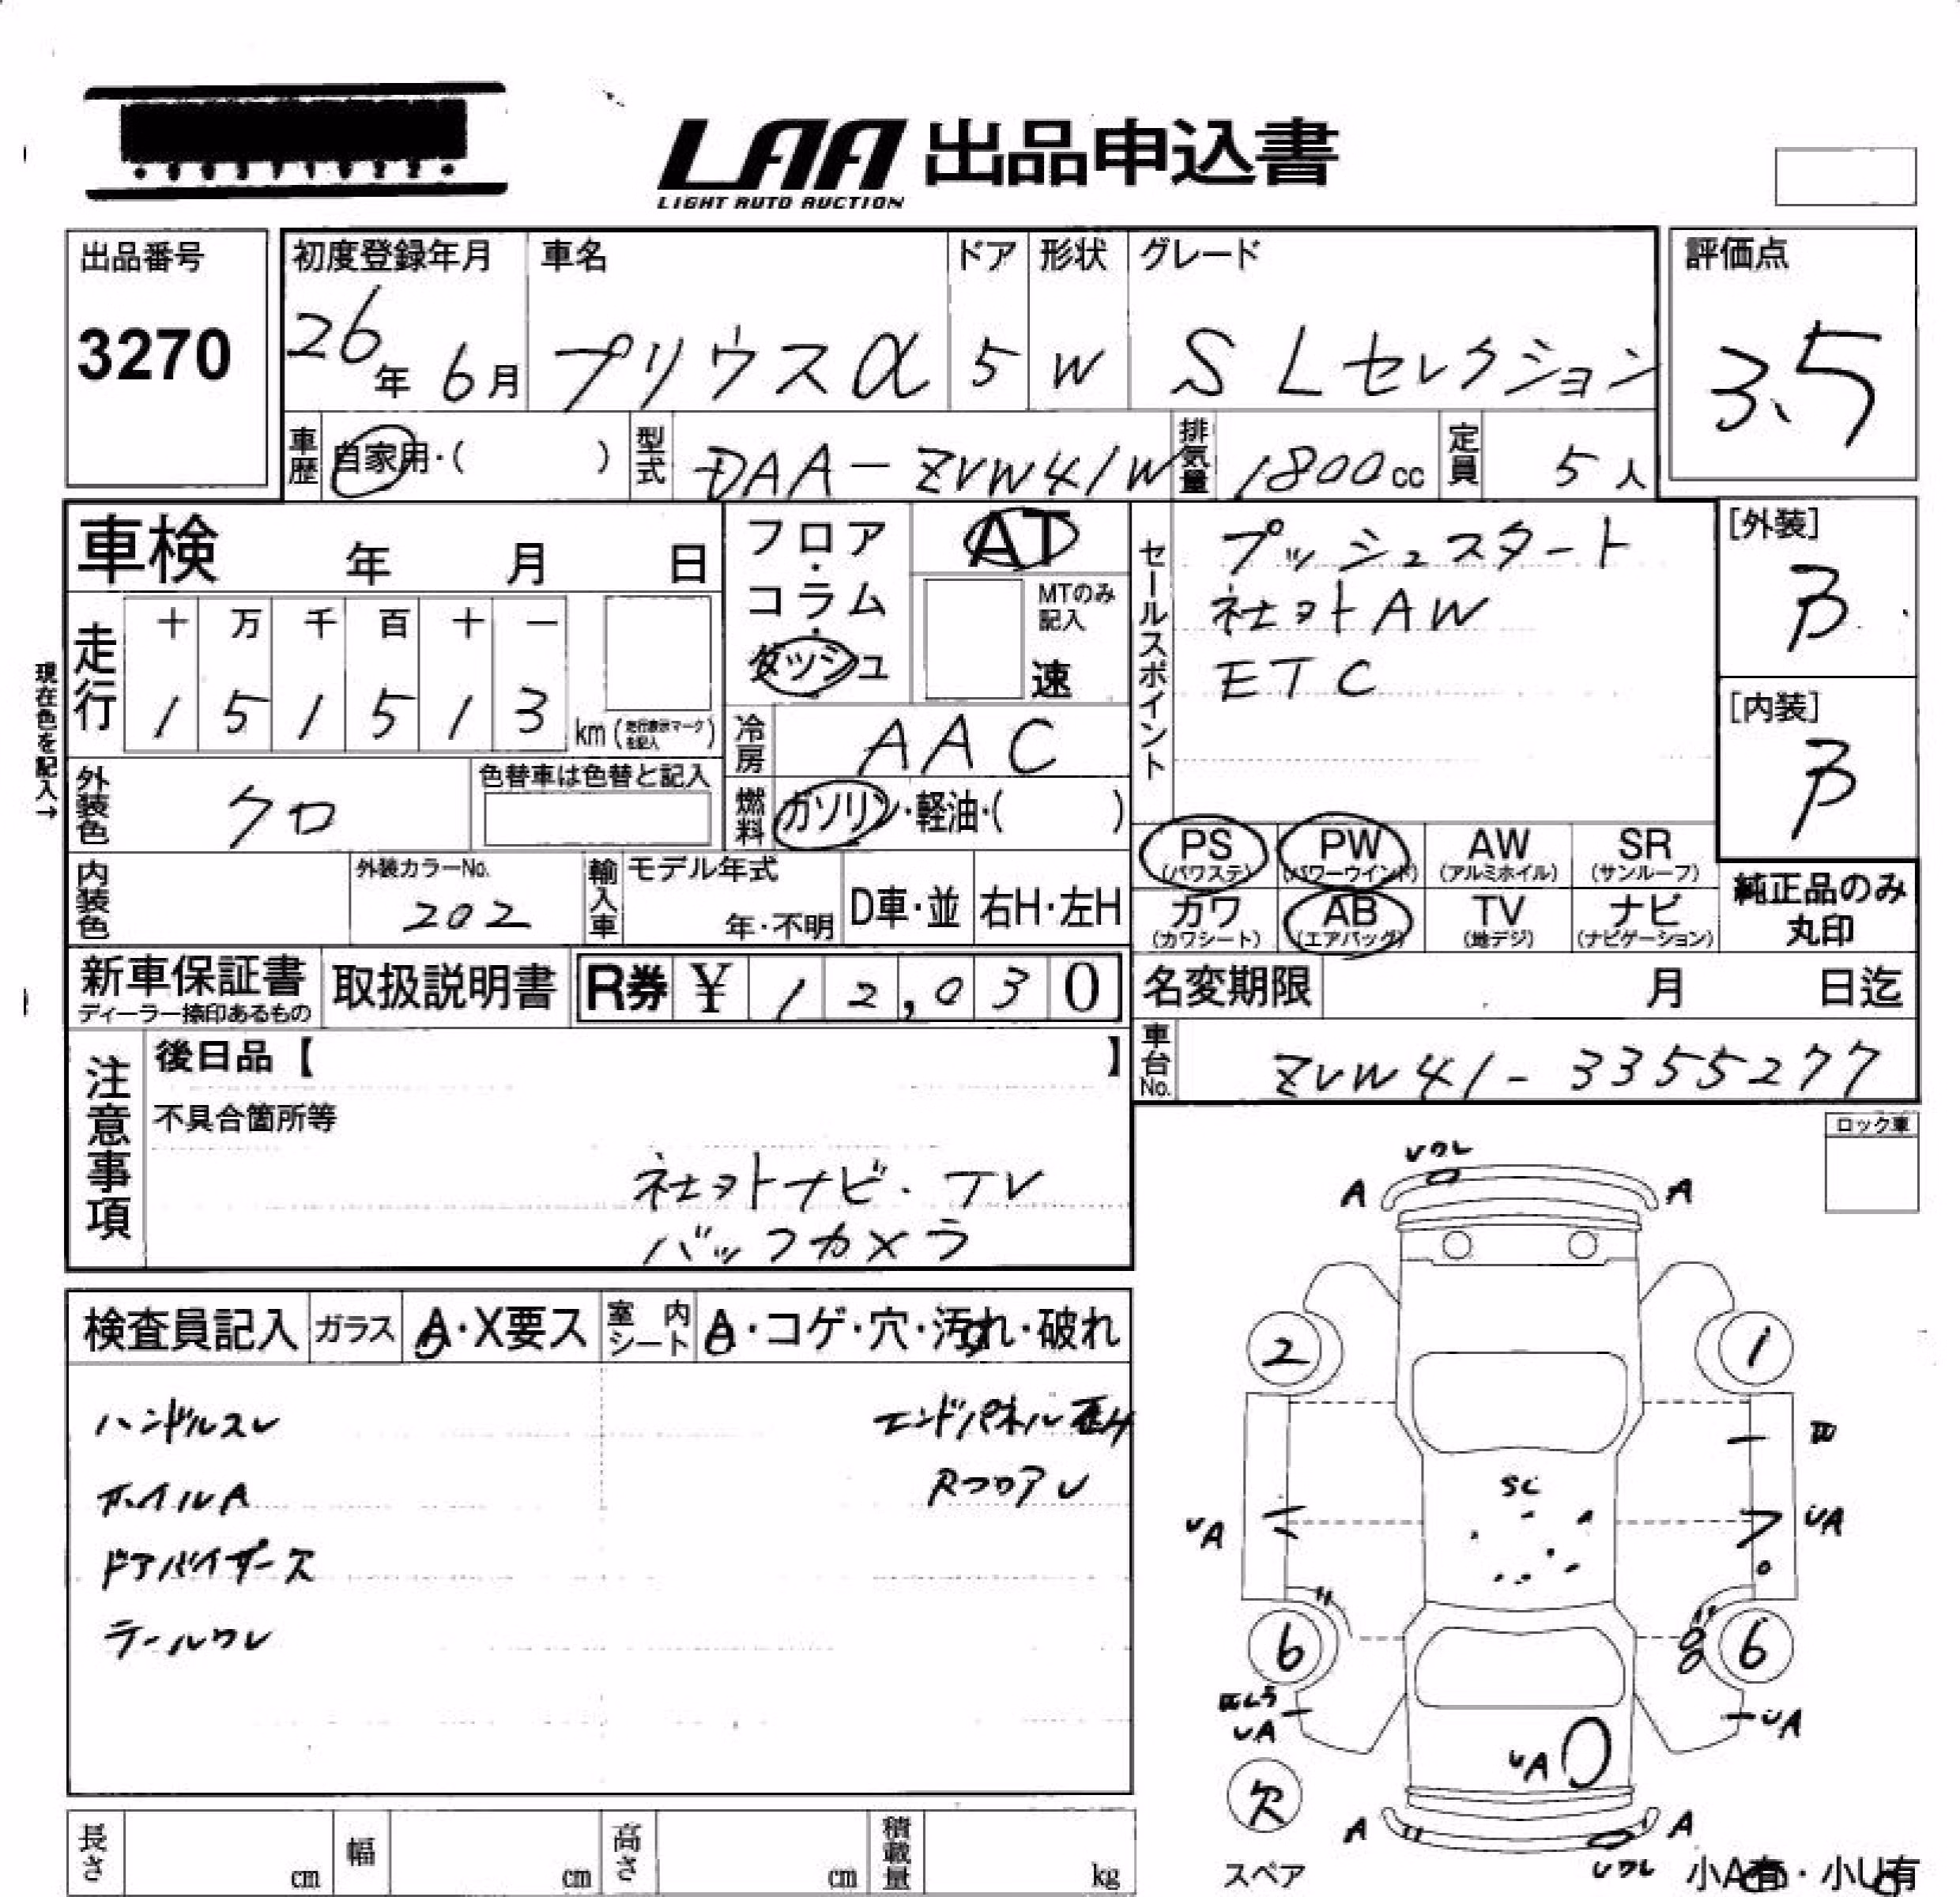 LAA 出品申込書
LIGHT AUTO AUCTION
出品番号
3270
初度登録年月 車名 ドア 形状 グレード
26年 6月 プリウスα 5 W S Lセレクション
評価点
3.5
車歴 自家用・( ) 型式 DAA-ZVW41W 排気量 1800cc 定員 5人
車検 年 月 日
フロア・コラム・ダッシュ
AT
MTのみ記入
速
セールスポイント
プッシュスタート
社外AW
ETC
[外装]
B
[内装]
B
現在色を記入→
走行 十 万 千 百 十 一
1 5 1 5 1 3 km (走行表示マークを記入)
冷房 AAC
外装色 クロ 色替車は色替と記入
燃料 ガソリン・軽油・( )
PS (パワステ) PW (パワーウインド) AW (アルミホイル) SR (サンルーフ)
カワ (カワシート) AB (エアバッグ) TV (地デジ) ナビ (ナビゲーション)
純正品のみ丸印
内装色 外装カラーNo. 202 輸入車 モデル年式 年・不明 D車・並 右H・左H
新車保証書 ディーラー捺印あるもの 取扱説明書 R券 ¥ 12,030
名変期限 月 日迄
車台No. ZVW41-3355277
注意事項
後日品【 】
不具合箇所等
社外ナビ・TV
バックカメラ
ロック車
検査員記入 ガラス A・X要ス 室内シート A・コゲ・穴・汚れ・破れ
ハンドルスレ エンドパネル歪み
ホイルA RフロアU
ドアバイザー欠
テールワレ
Uワレ
A A
2 1
SC
UA UA
6 6
UA UA
UA
欠
スペア
A A
Uワレ
小A有・小U有
長さ cm 幅 cm 高さ cm 積載量 kg